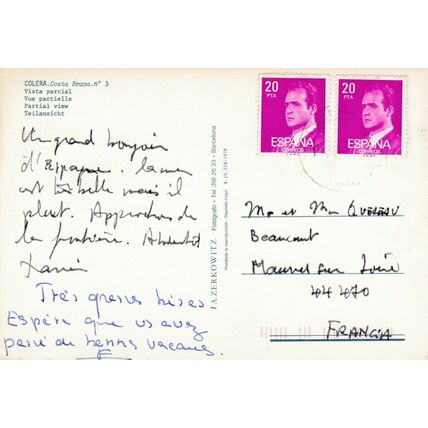 COLERA. Costa Brava. n° 3
Vista parcial
Vue partielle
Partial view
Teilansicht
20
PTA
ESPAÑA
CORREOS
20
PTA
ESPAÑA
CORREOS
Un grand bonjour
d'Espagne. la mer
est très belle mais il
pleut. Approchons de
la frontière. A bientôt
Xavier
Très grosses bises.
Espère que vs avez
passé de bonnes vacances.
A. ZERKOWITZ Fotógrafo - Tel. 318 20 33 - Barcelona
Prohibida la reproducción - Depósito Legal B. 19.226-1978
Mr et Mme
Beaucourt
Mauves sur Loire
44 470
FRANCIA